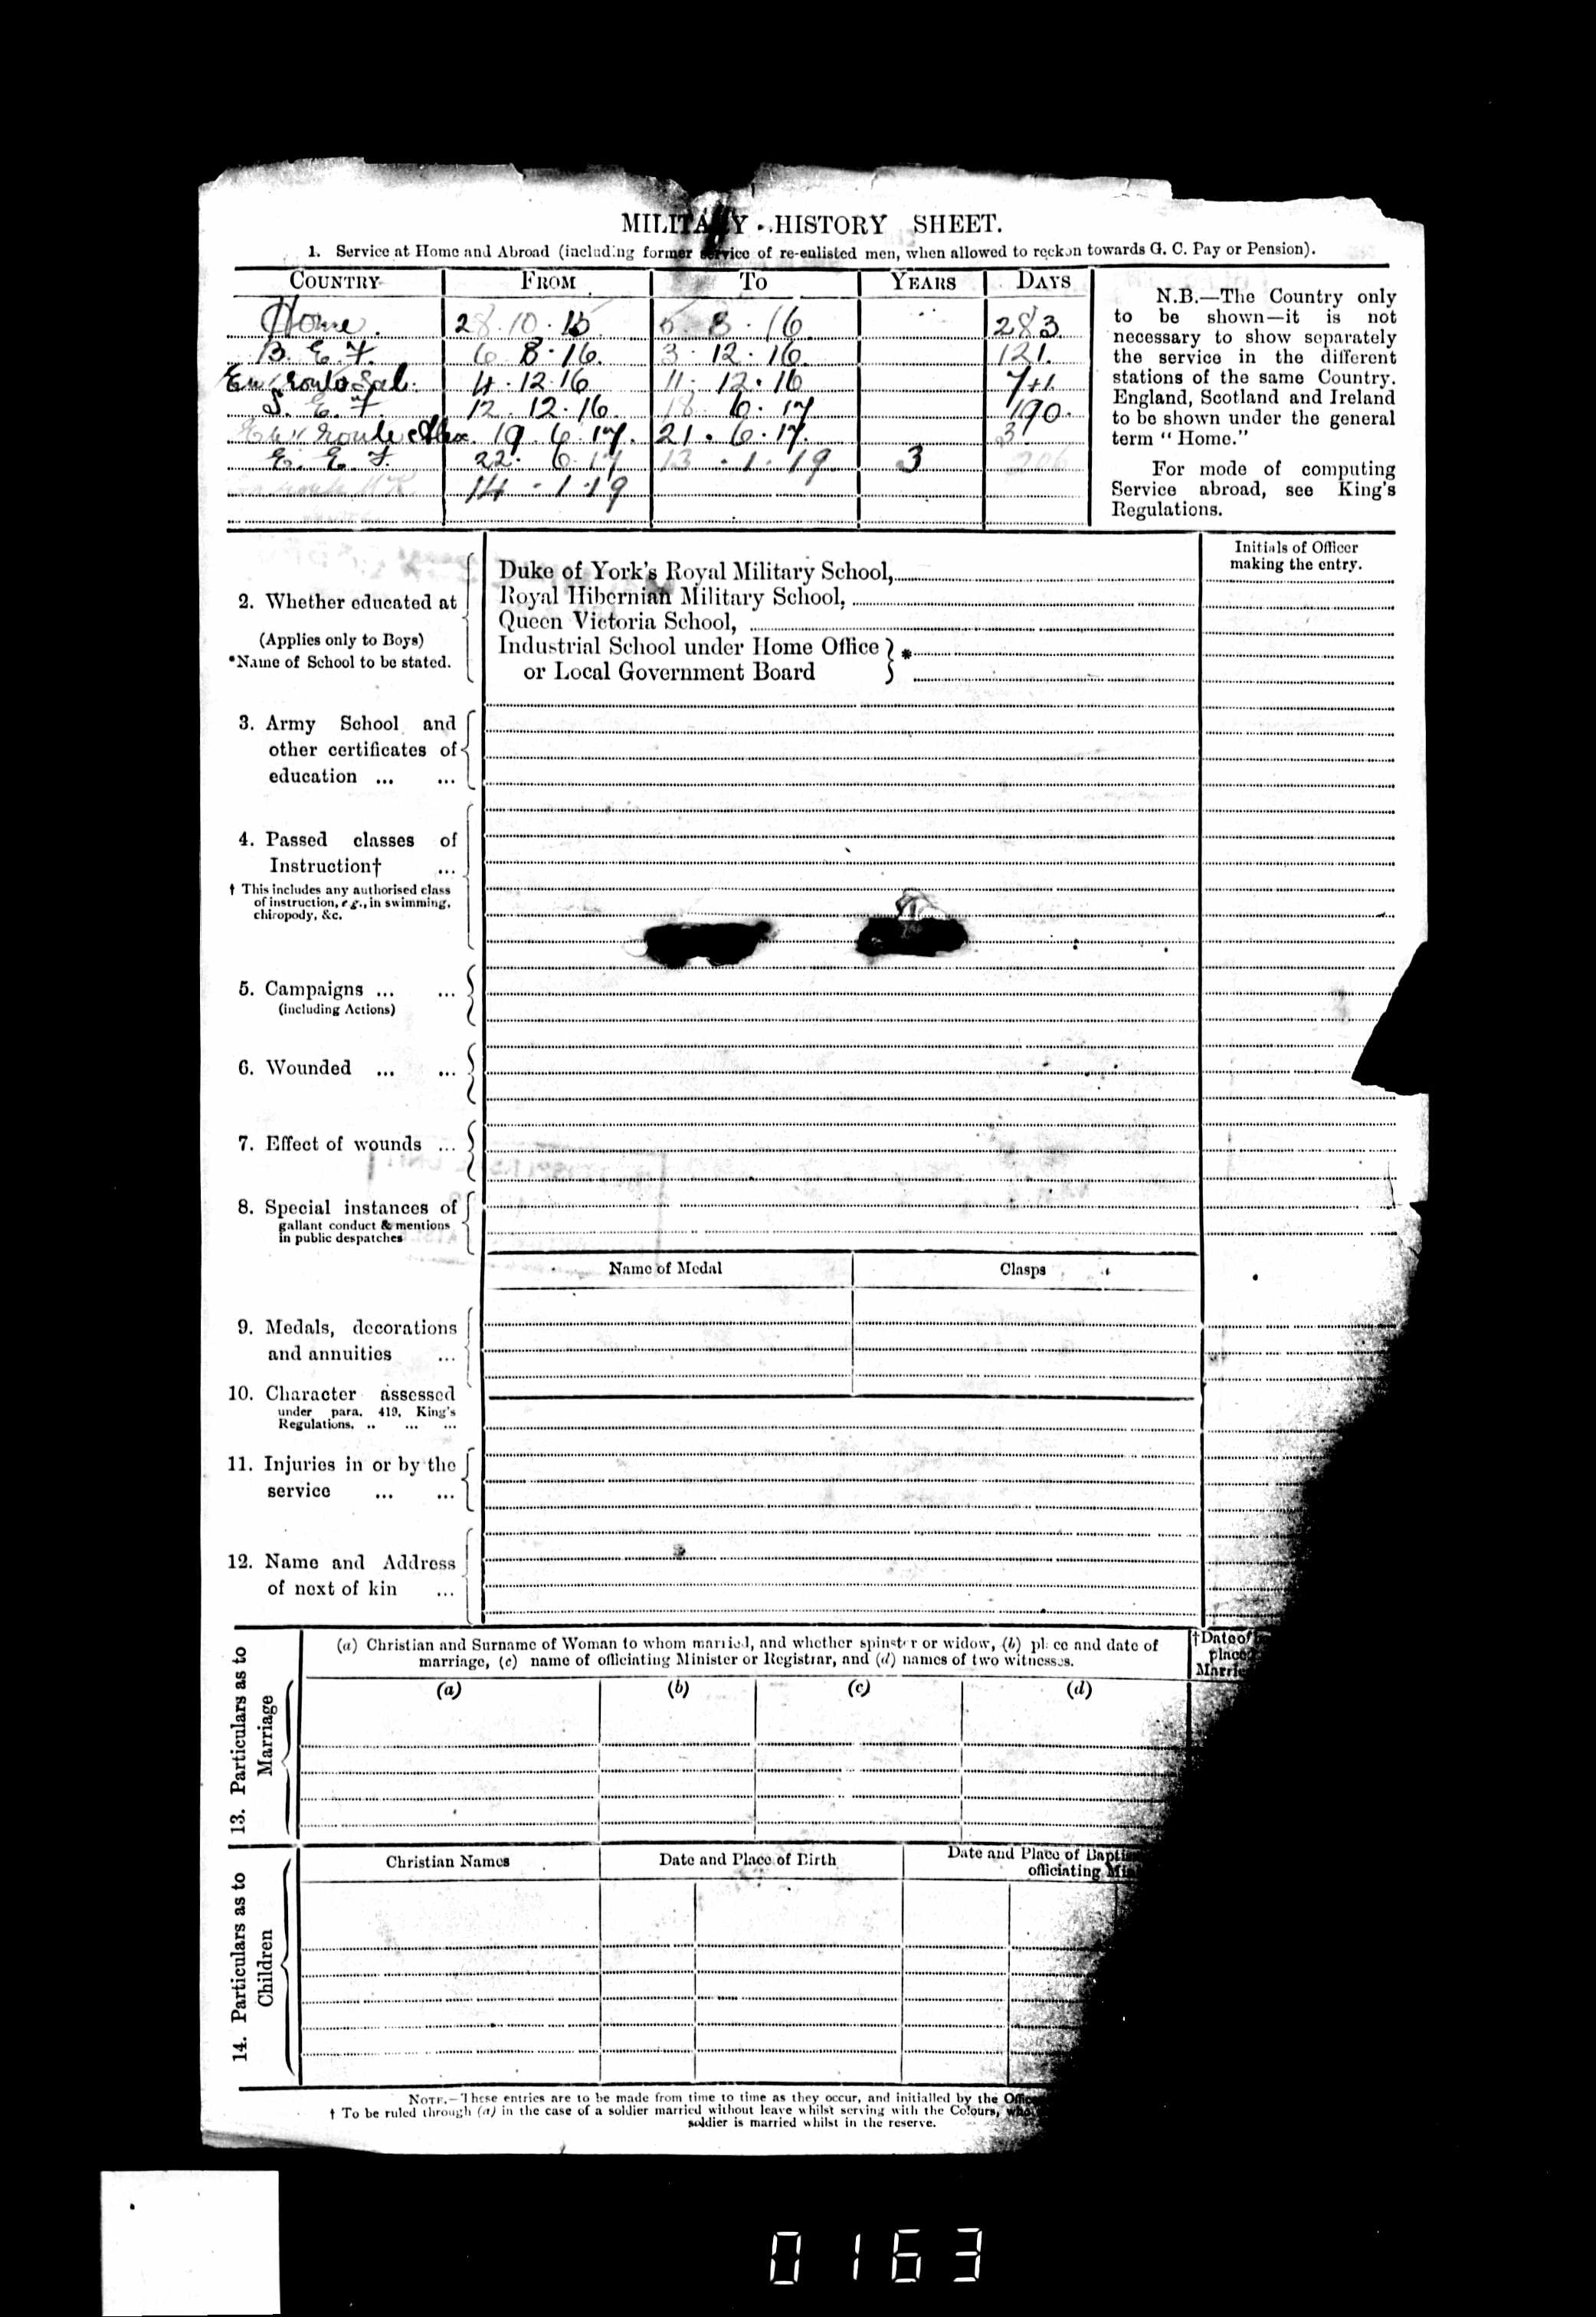 MILITARY HISTORY SHEET.
1. Service at Home and Abroad (including former service of re-enlisted men, when allowed to reckon towards G. C. Pay or Pension).
COUNTRY FROM TO YEARS DAYS
Home. 28.10.15 5.8.16 283
B. E. F. 6 8.16. 3.12.16 121.
En route Sal. 4.12.16 11.12.16 7+1
S. E. F. 12.12.16 18.6.17 190.
En route Alex. 19.6.17. 21.6.17. 3
E. E. F. 22.6.17 13.1.19 3 206
En route 14.1.19
N.B.—The Country only
to be shown—it is not
necessary to show separately
the service in the different
stations of the same Country.
England, Scotland and Ireland
to be shown under the general
term "Home."
For mode of computing
Service abroad, see King's
Regulations.
Initials of Officer
making the entry.
2. Whether educated at
(Applies only to Boys)
*Name of School to be stated.
Duke of York's Royal Military School,
Royal Hibernian Military School,
Queen Victoria School,
Industrial School under Home Office } *
or Local Government Board
3. Army School and
other certificates of
education ... ...
4. Passed classes of
Instruction† ...
† This includes any authorised class
of instruction, e.g., in swimming,
chiropody, &c.
5. Campaigns ... ...
(including Actions)
6. Wounded ... ...
7. Effect of wounds ...
8. Special instances of
gallant conduct & mentions
in public despatches
Name of Medal Clasps
9. Medals, decorations
and annuities ...
10. Character assessed
under para. 419, King's
Regulations. .. ... ...
11. Injuries in or by the
service ... ...
12. Name and Address
of next of kin ...
13. Particulars as to
Marriage
(a) Christian and Surname of Woman to whom married, and whether spinster or widow, (b) place and date of
marriage, (c) name of officiating Minister or Registrar, and (d) names of two witnesses.
†Date of
place
Marri
(a) (b) (c) (d)
14. Particulars as to
Children
Christian Names Date and Place of Birth Date and Place of Bapti
officiating Mi
NOTE.—These entries are to be made from time to time as they occur, and initialled by the Offic
† To be ruled through (a) in the case of a soldier married without leave whilst serving with the Colours,
soldier is married whilst in the reserve.
0163